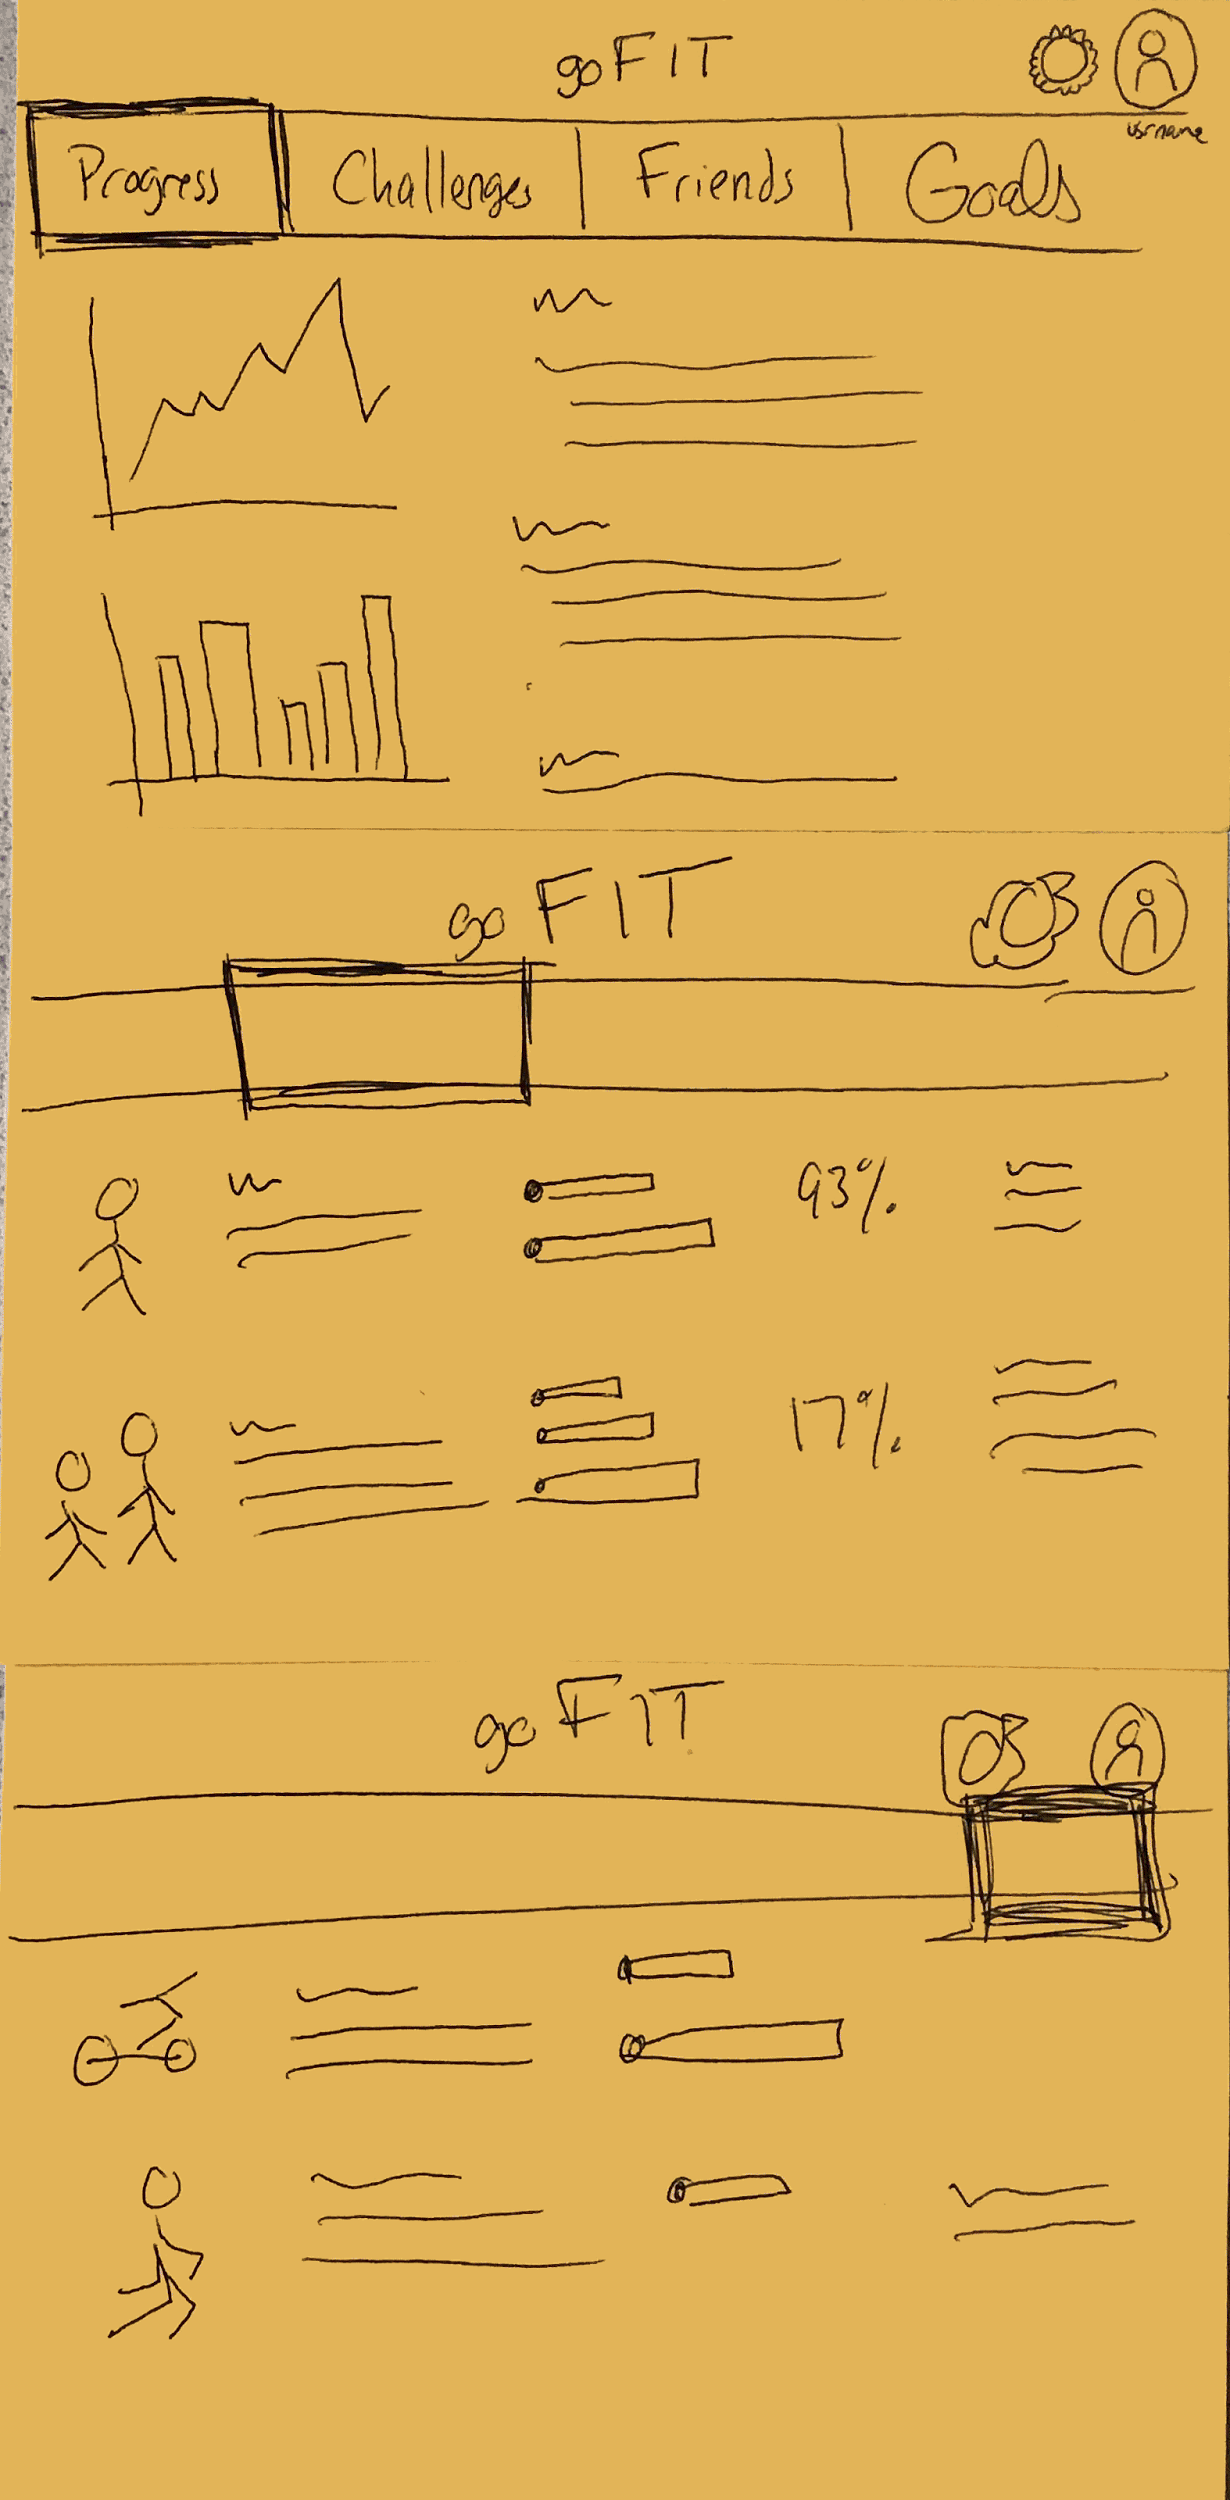 goFIT
usrname
Progress Challenges Friends Goals
go FIT
93%
17%
go FIT